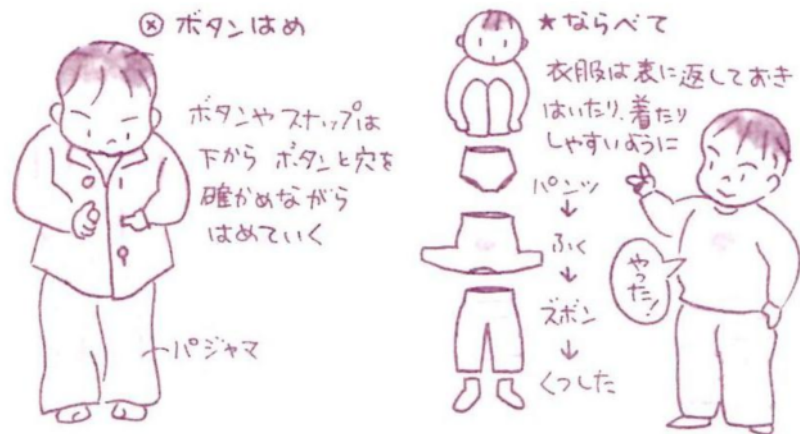 ⊗ ボタンはめ
ボタンやスナップは
下から ボタンと穴を
確かめながら
はめていく
パジャマ
★ならべて
衣服は表に返しておき
はいたり、着たり
しやすいように
パンツ
↓
ふく
↓
ズボン
↓
くつした
やった!